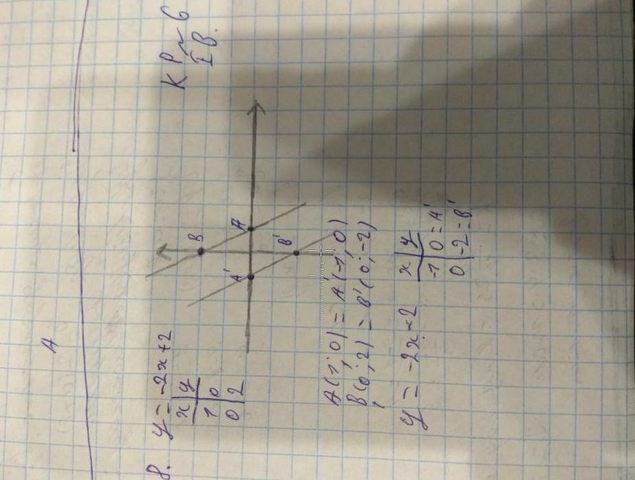 А
КР № 6
I В.
8. y = -2x+2
x | y
1 | 0
0 | 2
B
A
A'
B'
A(1; 0) = A'(-1; 0)
B(0; 2) = B'(0; -2)
y = -2x-2
x | y
-1 | 0 = A'
0 | -2 = B'